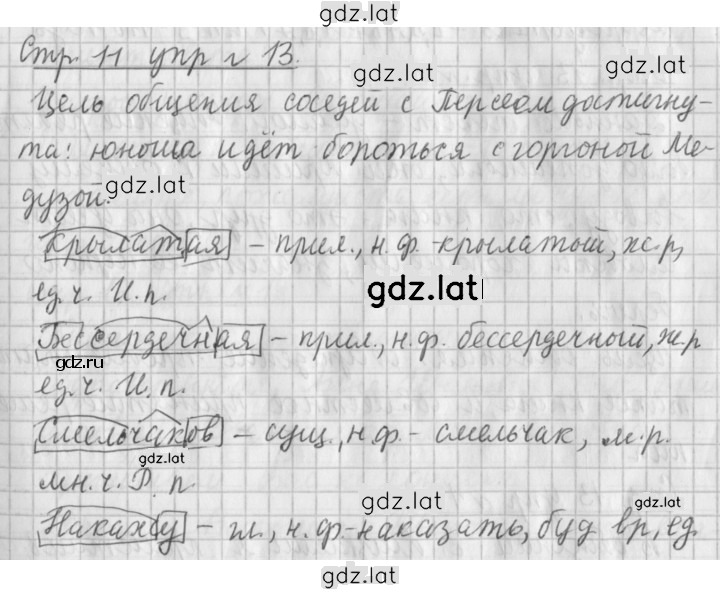 gdz.lat
Стр. 11 упр № 13.
gdz.lat
gdz.lat
Цель общения соседей с Персеем достигну-
та: юноша идёт бороться с горгоной Ме-
gdz.lat
дузой.
Крылатая – прил., н.ф. - крылатый, ж.р,
ед.ч. И.п.
gdz.lat
Бессердечная – прил., н.ф. бессердечный, ж.р
gdz.ru
ед.ч. И.п.
Смельчаков – сущ., н.ф. - смельчак, м.р.
gdz.lat
мн.ч. Р.п.
gdz.lat
gdz.lat
Накажу – гл., н.ф. - наказать, буд вр, ед.
gdz.lat